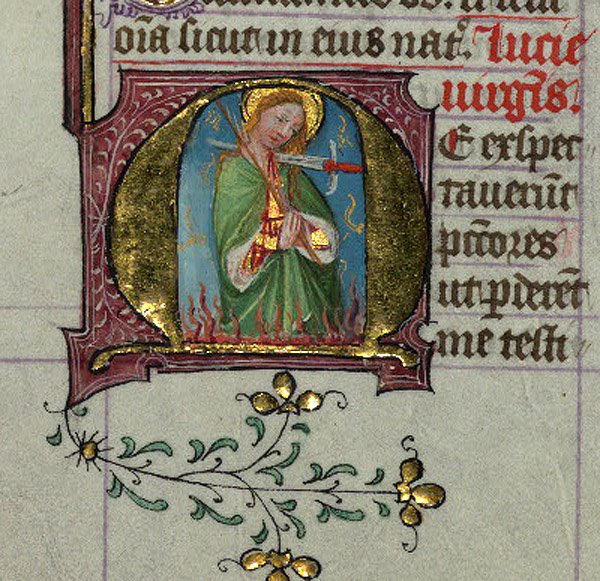 oīa sicut in eius nat̾. Lucie
uirgīs.
ME exspec
tauerūt
pctōres
ut ꝑderēt
me testi